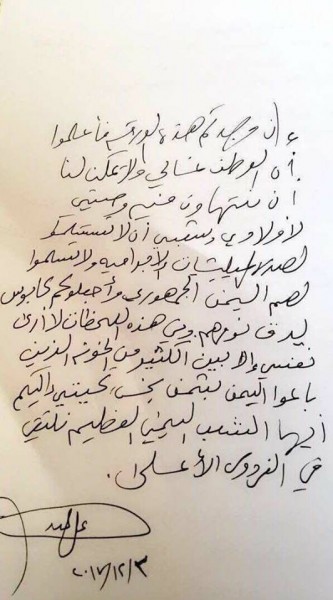 إن وجدتم هذه الورقة فأعلموا
أن الوطن غالي ولا يمكن لنا
أن نتهاون فيه وصيتي
لأولادي وشعبي أن لا تستسلمو
لهذه المليشيات الإجرامية ولا تسلموا
لهم اليمن الجمهوري وأجعلوكم كابوس
يدق نومهم وفي هذه اللحظات لا أرئ
نفسي إلا بين الكثير من الخونه الذين
باعوا اليمن بثمن بخس تحيتي إليكم
أيها الشعب اليمني العظيم نلتقي
في الفردوس الأعلى.
٢٠١٧/١٢/٣